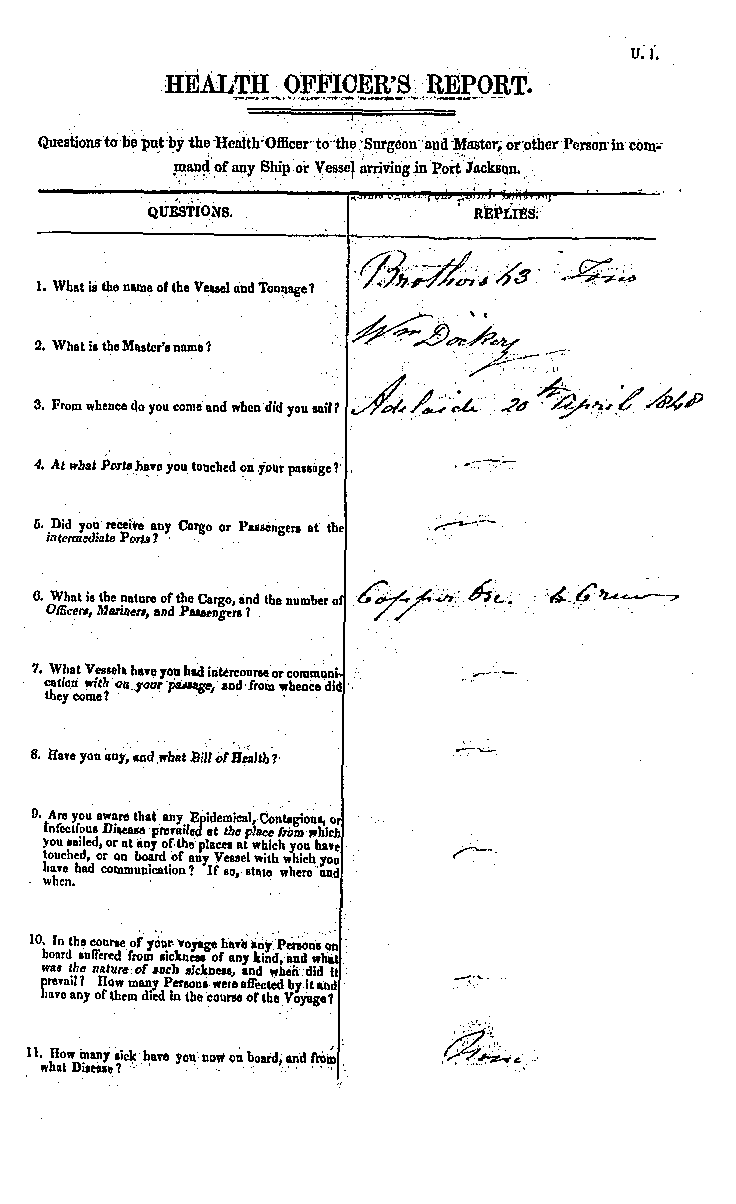 U. 1.
HEALTH OFFICER'S REPORT.
Questions to be put by the Health Officer to the Surgeon and Master, or other Person in com-
mand of any Ship or Vessel arriving in Port Jackson.
QUESTIONS.
REPLIES.
1. What is the name of the Vessel and Tonnage?
Brothers 63 Tons
2. What is the Master's name?
Wm Dockery
3. From whence do you come and when did you sail?
Adelaide 20th April 1848
4. At what Ports have you touched on your passage?
—
5. Did you receive any Cargo or Passengers at the
intermediate Ports?
—
6. What is the nature of the Cargo, and the number of
Officers, Mariners, and Passengers?
Copper Ore. Crew
7. What Vessels have you had intercourse or communi-
cation with on your passage, and from whence did
they come?
—
8. Have you any, and what Bill of Health?
—
9. Are you aware that any Epidemical, Contagious, or
Infectious Disease prevailed at the place from which
you sailed, or at any of the places at which you have
touched, or on board of any Vessel with which you
have had communication? If so, state where and
when.
—
10. In the course of your voyage have any Persons on
board suffered from sickness of any kind, and what
was the nature of such sickness, and when did it
prevail? How many Persons were affected by it and
have any of them died in the course of the Voyage?
—
11. How many sick have you now on board, and from
what Disease?
None